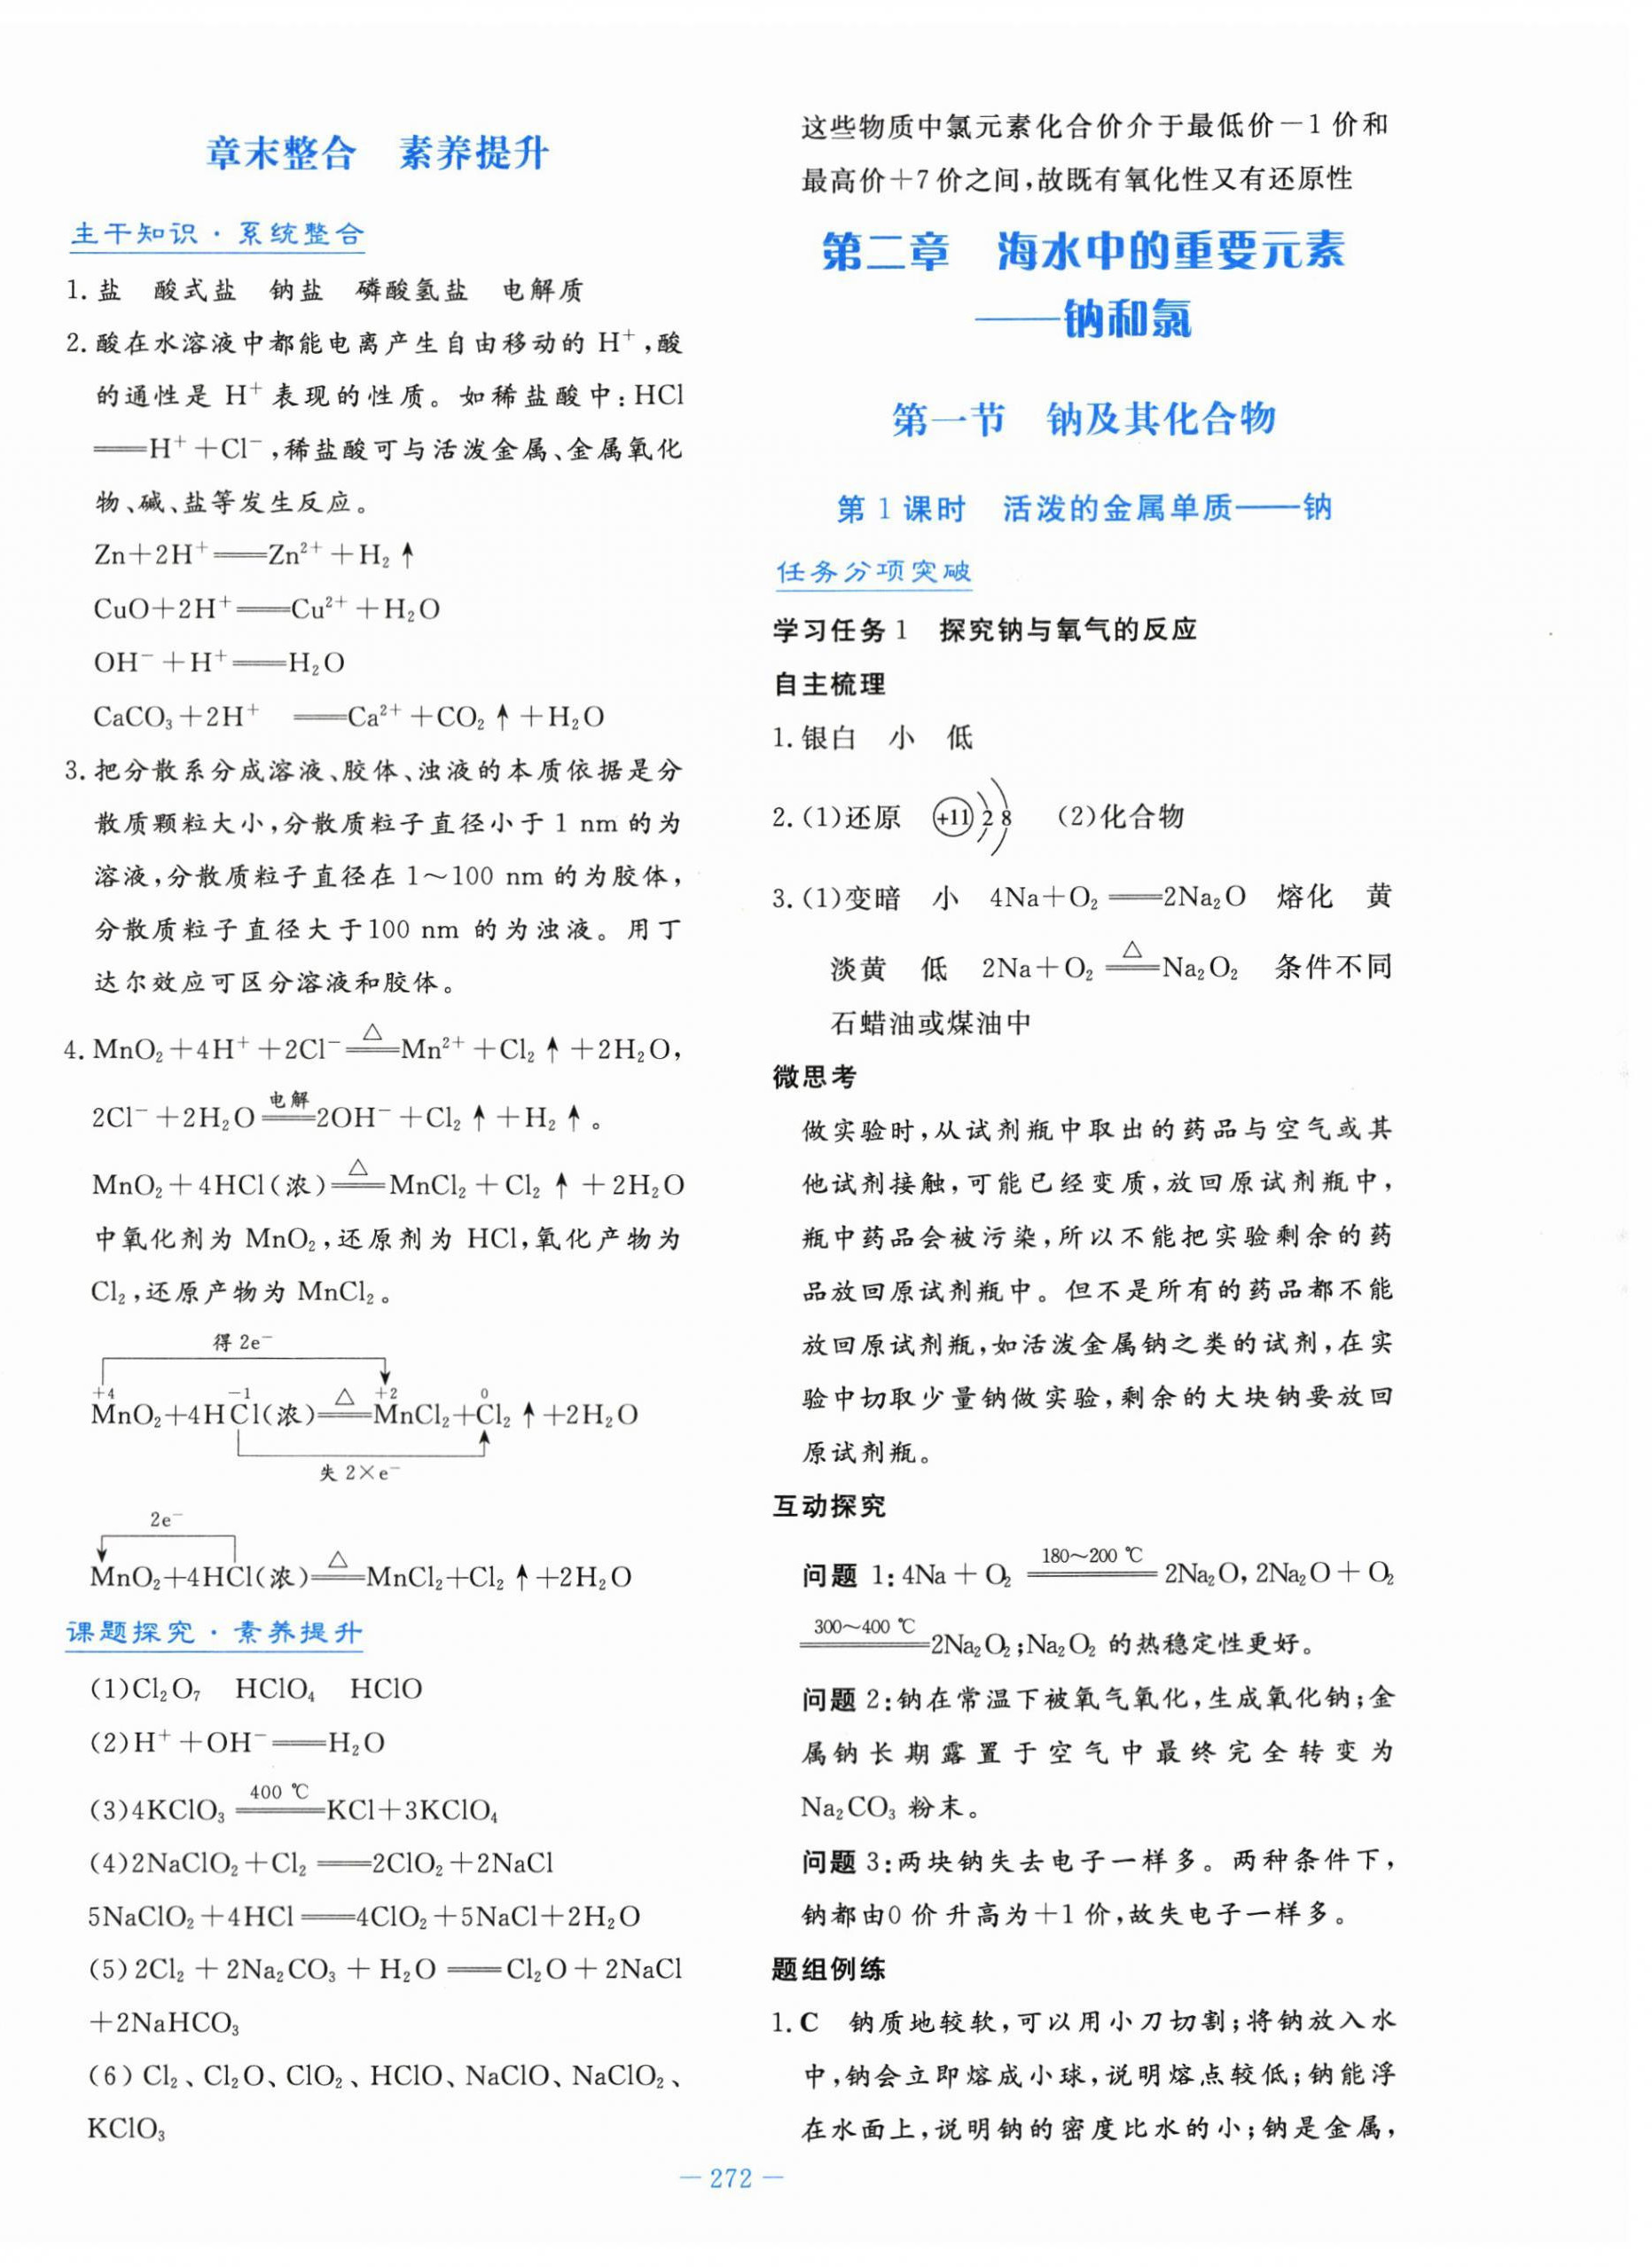 章末整合　素养提升
主干知识·系统整合
1. 盐　酸式盐　钠盐　磷酸氢盐　电解质
2. 酸在水溶液中都能电离产生自由移动的 H⁺,酸
的通性是 H⁺ 表现的性质。如稀盐酸中:HCl
══H⁺+Cl⁻,稀盐酸可与活泼金属、金属氧化
物、碱、盐等发生反应。
Zn+2H⁺══Zn²⁺+H₂↑
CuO+2H⁺══Cu²⁺+H₂O
OH⁻+H⁺══H₂O
CaCO₃+2H⁺　══Ca²⁺+CO₂↑+H₂O
3. 把分散系分成溶液、胶体、浊液的本质依据是分
散质颗粒大小,分散质粒子直径小于 1 nm 的为
溶液,分散质粒子直径在 1～100 nm 的为胶体,
分散质粒子直径大于100 nm 的为浊液。用丁
达尔效应可区分溶液和胶体。
4. MnO₂+4H⁺+2Cl⁻ ══△══ Mn²⁺+Cl₂↑+2H₂O,
2Cl⁻+2H₂O ══电解══ 2OH⁻+Cl₂↑+H₂↑。
MnO₂+4HCl(浓) ══△══ MnCl₂+Cl₂↑+2H₂O
中氧化剂为 MnO₂,还原剂为 HCl,氧化产物为
Cl₂,还原产物为 MnCl₂。
得 2e⁻
+4　−1　+2　0
MnO₂+4HCl(浓) ══△══ MnCl₂+Cl₂↑+2H₂O
失 2×e⁻
2e⁻
MnO₂+4HCl(浓) ══△══ MnCl₂+Cl₂↑+2H₂O
课题探究·素养提升
(1)Cl₂O₇　HClO₄　HClO
(2)H⁺+OH⁻══H₂O
(3)4KClO₃ ══400 ℃══ KCl+3KClO₄
(4)2NaClO₂+Cl₂══2ClO₂+2NaCl
5NaClO₂+4HCl══4ClO₂+5NaCl+2H₂O
(5)2Cl₂+2Na₂CO₃+H₂O══Cl₂O+2NaCl
+2NaHCO₃
(6)Cl₂、Cl₂O、ClO₂、HClO、NaClO、NaClO₂、
KClO₃
这些物质中氯元素化合价介于最低价−1 价和
最高价+7 价之间,故既有氧化性又有还原性
第二章　海水中的重要元素
——钠和氯
第一节　钠及其化合物
第 1 课时　活泼的金属单质——钠
任务分项突破
学习任务 1　探究钠与氧气的反应
自主梳理
1. 银白　小　低
2. (1)还原　+11 2 8　(2)化合物
3. (1)变暗　小　4Na+O₂══2Na₂O　熔化　黄
淡黄　低　2Na+O₂ ══△══ Na₂O₂　条件不同
石蜡油或煤油中
微思考
做实验时,从试剂瓶中取出的药品与空气或其
他试剂接触,可能已经变质,放回原试剂瓶中,
瓶中药品会被污染,所以不能把实验剩余的药
品放回原试剂瓶中。但不是所有的药品都不能
放回原试剂瓶,如活泼金属钠之类的试剂,在实
验中切取少量钠做实验,剩余的大块钠要放回
原试剂瓶。
互动探究
问题 1:4Na+O₂ ══180～200 ℃══ 2Na₂O,2Na₂O+O₂
══300～400 ℃══ 2Na₂O₂;Na₂O₂ 的热稳定性更好。
问题 2:钠在常温下被氧气氧化,生成氧化钠;金
属钠长期露置于空气中最终完全转变为
Na₂CO₃ 粉末。
问题 3:两块钠失去电子一样多。两种条件下,
钠都由0 价升高为+1 价,故失电子一样多。
题组例练
1. C　钠质地较软,可以用小刀切割;将钠放入水
中,钠会立即熔成小球,说明熔点较低;钠能浮
在水面上,说明钠的密度比水的小;钠是金属,
— 272 —